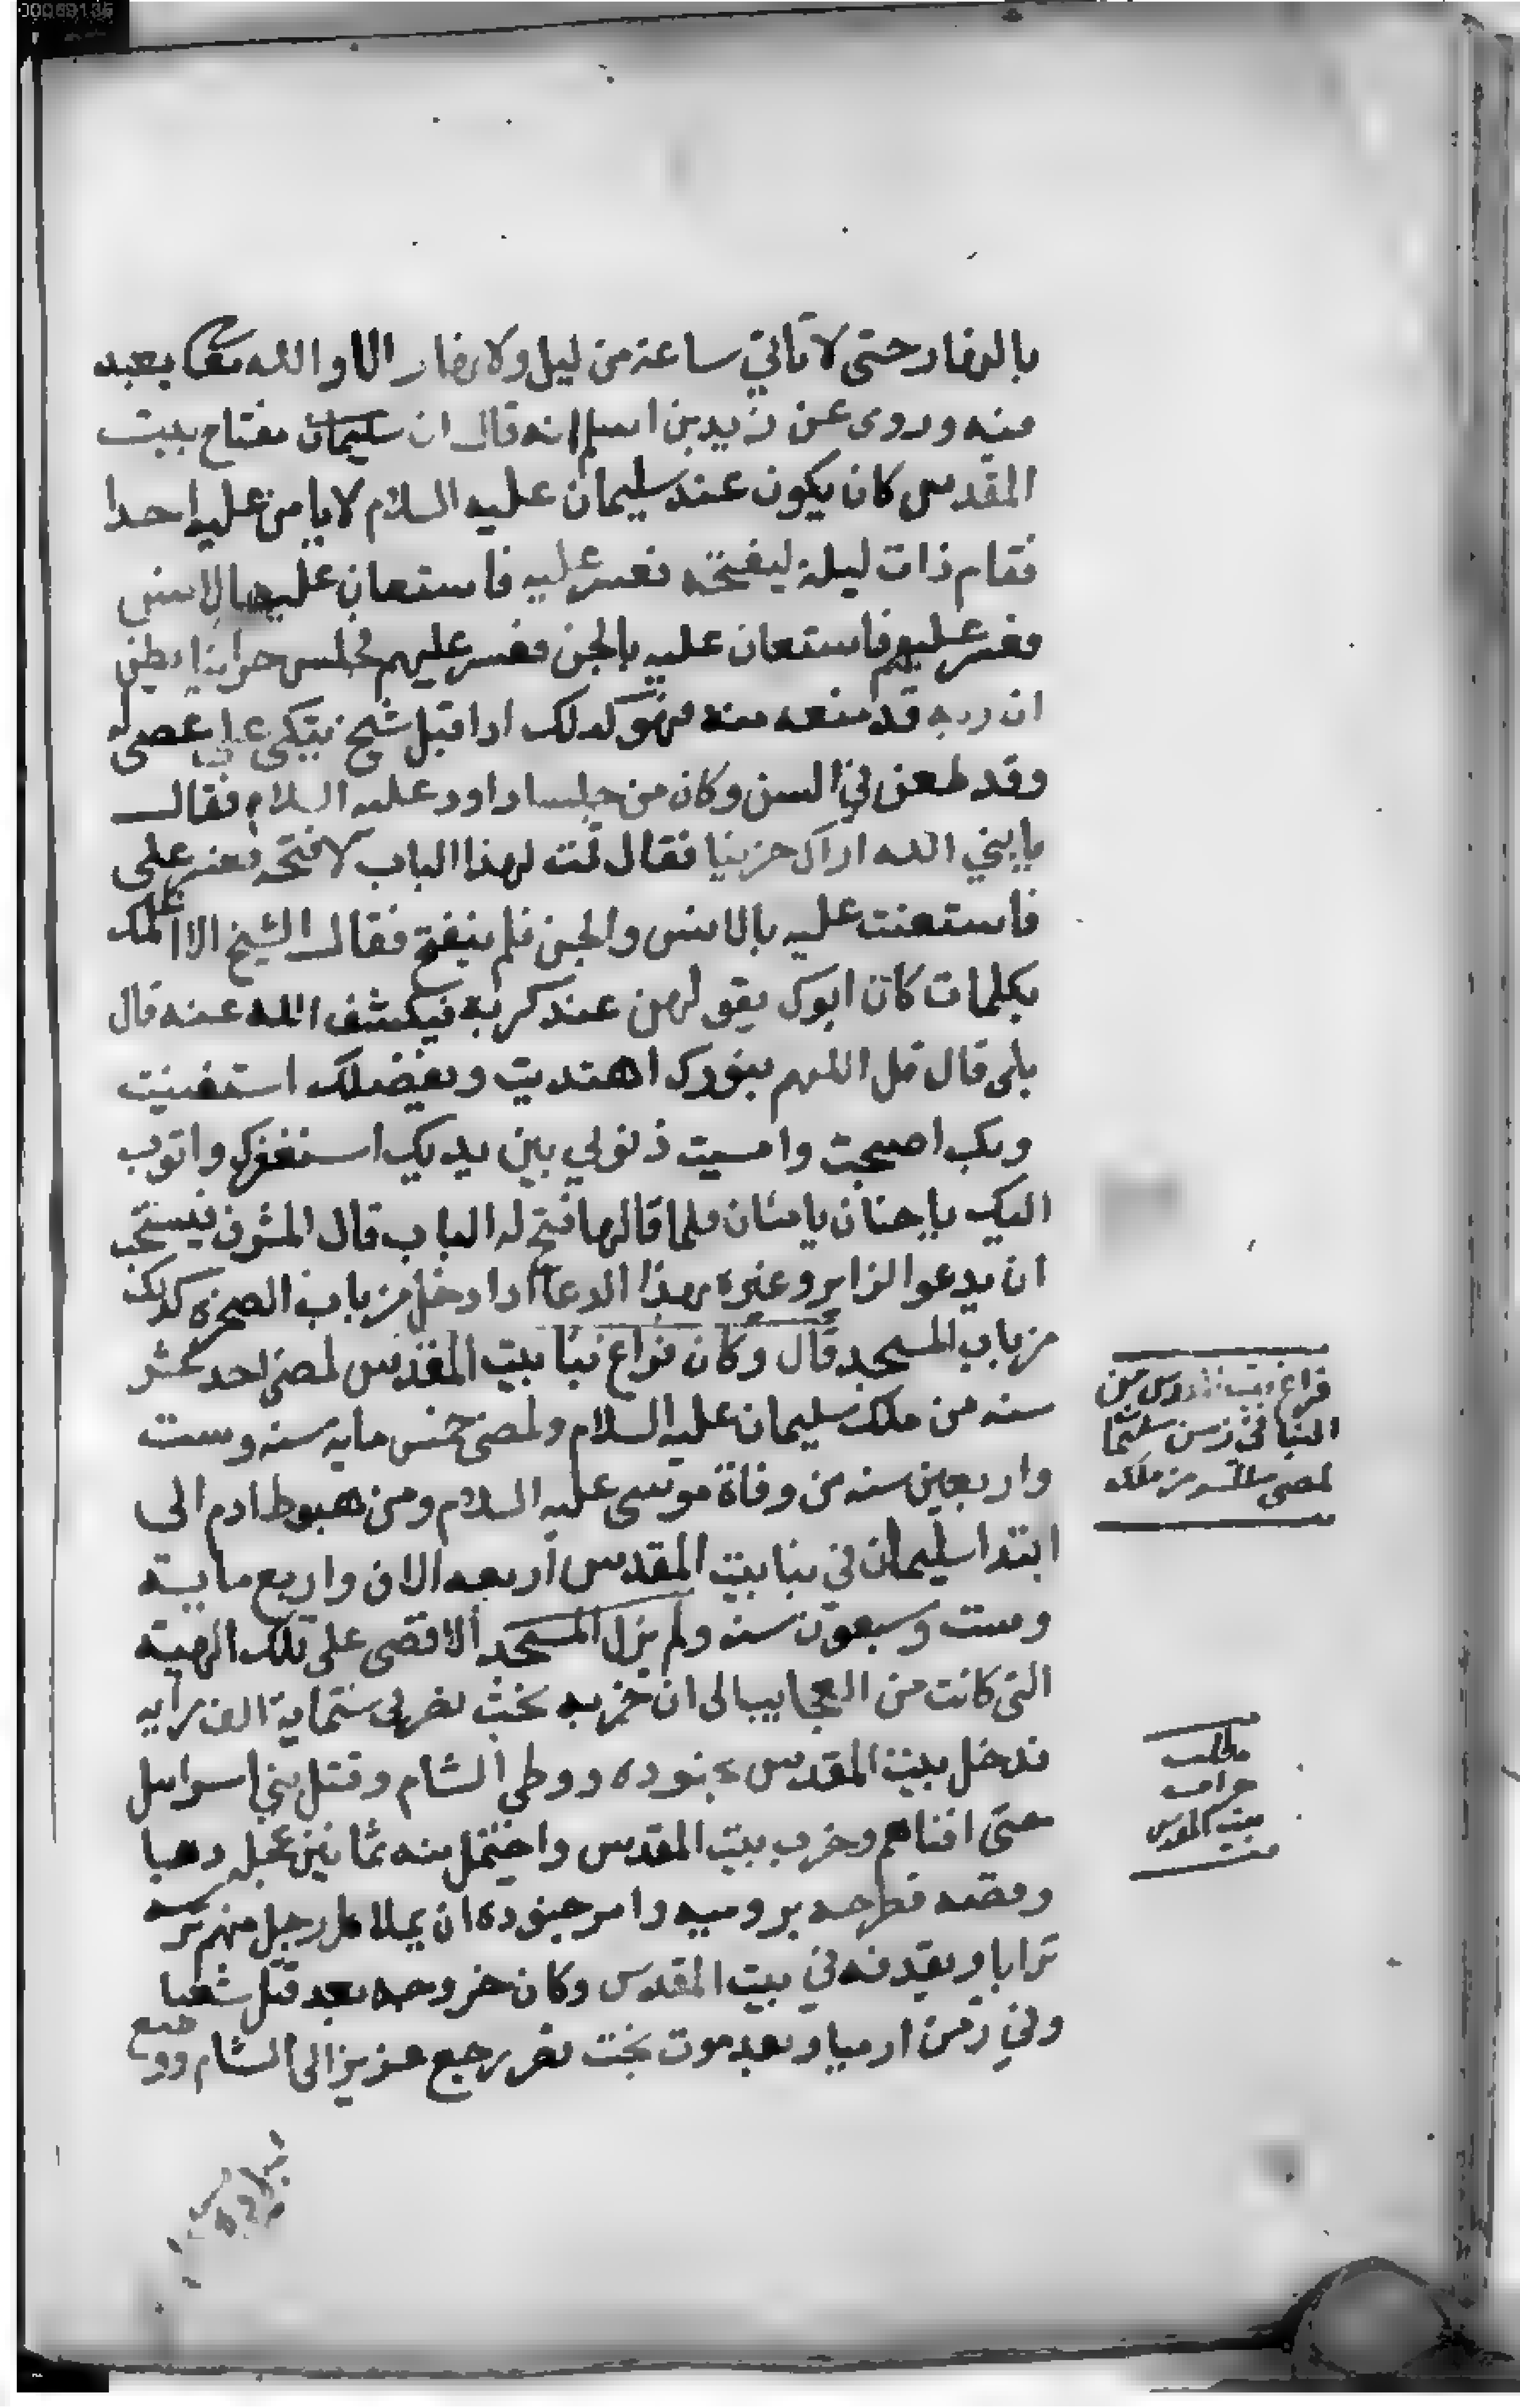 بالنهار حتى لا تاتي ساعة من ليل ولا نهار الا والله تعالى يعبد
فيه وروى عن زيد بن اسلم انه قال ان سليمان مفتاح بيت
المقدس كان يكون عند سليمان عليه السلام لا يامن عليه احدا
فقام ذات ليلة ليفتحه فعسر عليه فاستعان عليه بالانس
فعسر عليهم فاستعان عليه بالجن فعسر عليهم فجلس حزينا يظن
ان ربه قد منعه منه فهو كذلك اذ اقبل شيخ يتكى على عصى له
وقد طعن في السن وكان من جلسا داود عليه السلام فقال
يا نبي الله اراك حزينا فقال قمت لهذا الباب لافتحه فعسر على
فاستعنت عليه بالانس والجن فلم ينفتح فقال الشيخ الا اعلمك
بكلمات كان ابوك يقولهن عند كربه فيكشف الله عنه قال
بلى قال قل اللهم بنورك اهتديت وبفضلك استغنيت
وبك اصبحت وامسيت ذنوبي بين يديك استغفرك واتوب
اليك يا حنان يا منان فلما قالها فتح له الباب قال المشرف فيستحب
ان يدعوا الزاير وغيره بهذا الدعا اذا دخل من باب الصخرة كذلك
من باب المسجد قال وكان فراغ بنا بيت المقدس لمضى احد عشر
سنه من ملك سليمان عليه السلام ولمضى خمس مايه سنه وست
واربعين سنه من وفاة موسى عليه السلام ومن هبوط ادم الى
ابتدا سليمان في بنا بيت المقدس اربعه الاف واربع مايه
وست وسبعون سنه ولم يزل المسجد الاقصى على تلك الهيئة
التي كانت من العجايب الى ان خربه بخت نصر في ستماية الف راية
فدخل بيت المقدس بجنوده ووطى الشام وقتل بني اسراييل
حتى افناهم وخرب بيت المقدس واحتمل منه ثمانين عجله ذهبا
وفضه فطرحه برومية وامر جنوده ان يملا كل رجل منهم ترسه
ترابا ويقذفه في بيت المقدس وكان خروجه بعد قتل شعيا
وفي زمن ارميا وبعد موت بخت نصر رجع عزيز الى الشام ووضع
فراغ بيت المقدس من
البنا في زمن سليمان
لمضى من ملكه
مطلب
خراب
بيت المقدس